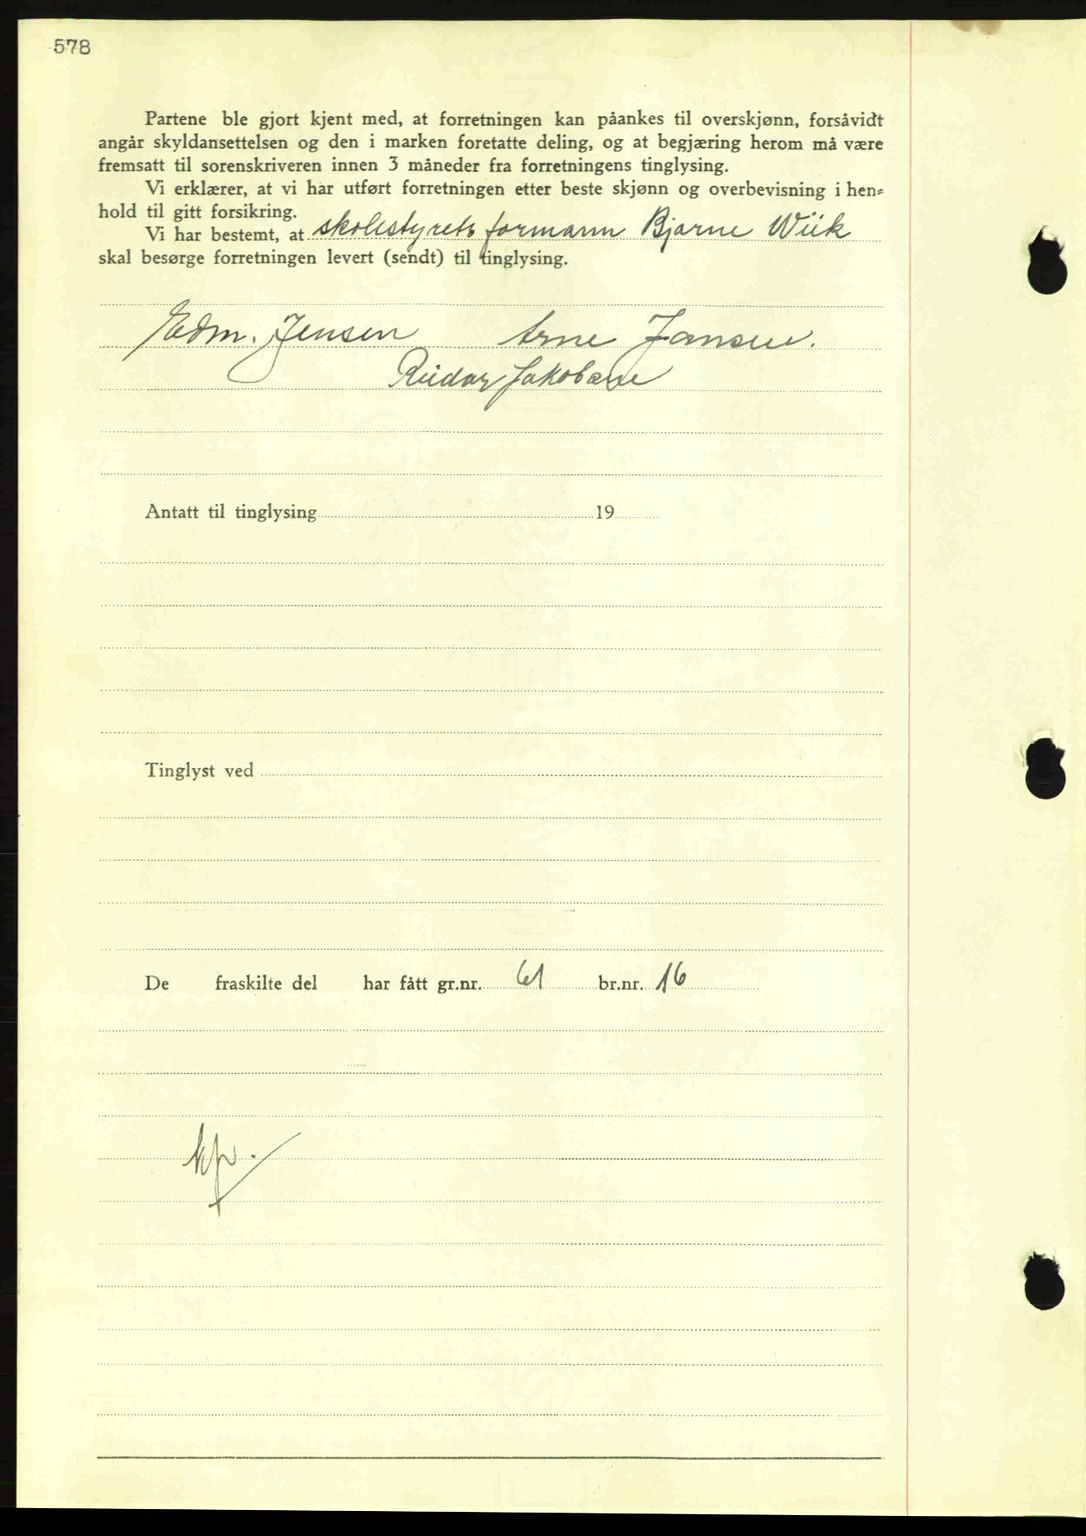 578
Partene ble gjort kjent med, at forretningen kan påankes til overskjønn, forsåvidt
angår skyldansettelsen og den i marken foretatte deling, og at begjæring herom må være
fremsatt til sorenskriveren innen 3 måneder fra forretningens tinglysing.
Vi erklærer, at vi har utført forretningen etter beste skjønn og overbevisning i hen=
hold til gitt forsikring.
Vi har bestemt, at skolestyrets formann Bjarne Wiik
skal besørge forretningen levert (sendt) til tinglysing.
Edm. Jensen Arne Jansen.
Reidar Jakobsen
Antatt til tinglysing 19
Tinglyst ved
De fraskilte del har fått gr.nr. 61 br.nr. 16
kp.